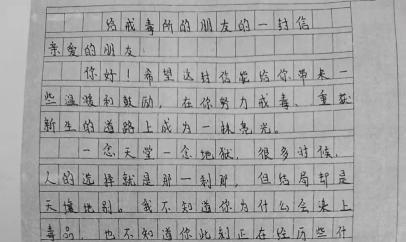 给戒毒所的朋友的一封信
亲爱的朋友:
你好!希望这封信能给你带来一
些温暖和鼓励,在你努力戒毒、重获
新生的道路上成为一抹亮光。
一念天堂一念地狱,很多时候,
人的选择就是那一刹那,但结局却是
天壤地别。我不知道你为什么会染上
毒品,也不知道你此刻正在经历些什